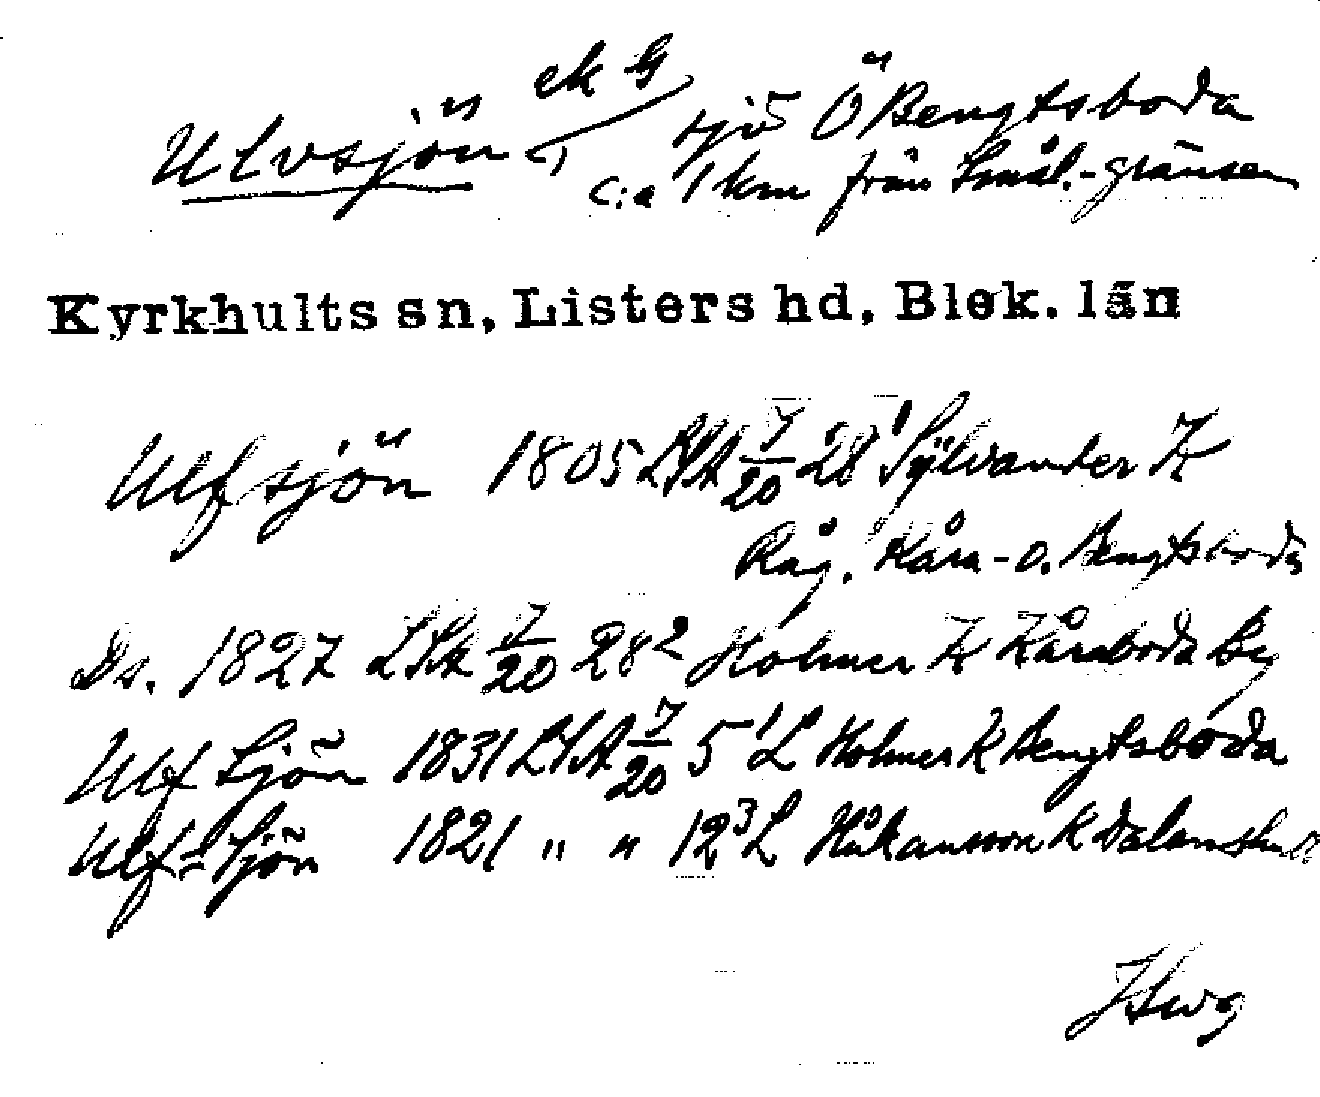 Ulvsjön ek G sjö Ö Bengtsboda
c:a 1 km från Smål.-gränsen
Kyrkhults sn, Listers hd, Blek. län
Ulfsjön 1805 LSA 7/20 28¹ Sylvander K
Råg. Kåra- o. Bengtsboda
Ds. 1827 LSA 7/20 28² Holmer K Kåraboda by
Ulf Sjön 1831 LSA 7/20 5¹ L Holmer K Bengtsboda
Ulf-Sjön 1821 " " 12³ L Håkansson K